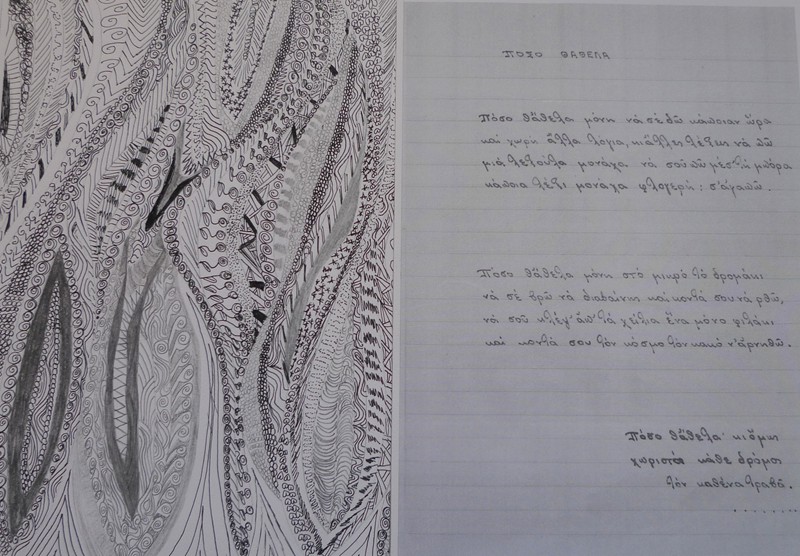 ΠΟΣΟ ΘΑΘΕΛΑ
Πόσο θἄθελα μόνη νὰ σὲ δῶ κάποιαν ὥρα
καὶ χωρὶς ἄλλα λόγια, κι ἄλλες λέξεις νὰ πῶ
μιὰ λεξούλα μονάχα νὰ σοῦ πῶ μὲς τὴ μπόρα
κάποια λέξι μονάχα φλογερή: σ' ἀγαπῶ.
Πόσο θἄθελα μόνη στὸ μικρό τὸ δρομάκι
νὰ σὲ βρῶ νὰ διαβαίνῃς καὶ κοντά σου νά ρθῶ,
νὰ σοῦ κλέψ' ἀπ' τὰ χείλια ἕνα μόνο φιλάκι
καὶ κοντά σου τὸν κόσμο τὸν κακὸ ν' ἀρνηθῶ.
Πόσο θἄθελα· κι ὅμως
χωριστὰ κάθε δρόμος
τὸν καθένα τραβᾶ.
........